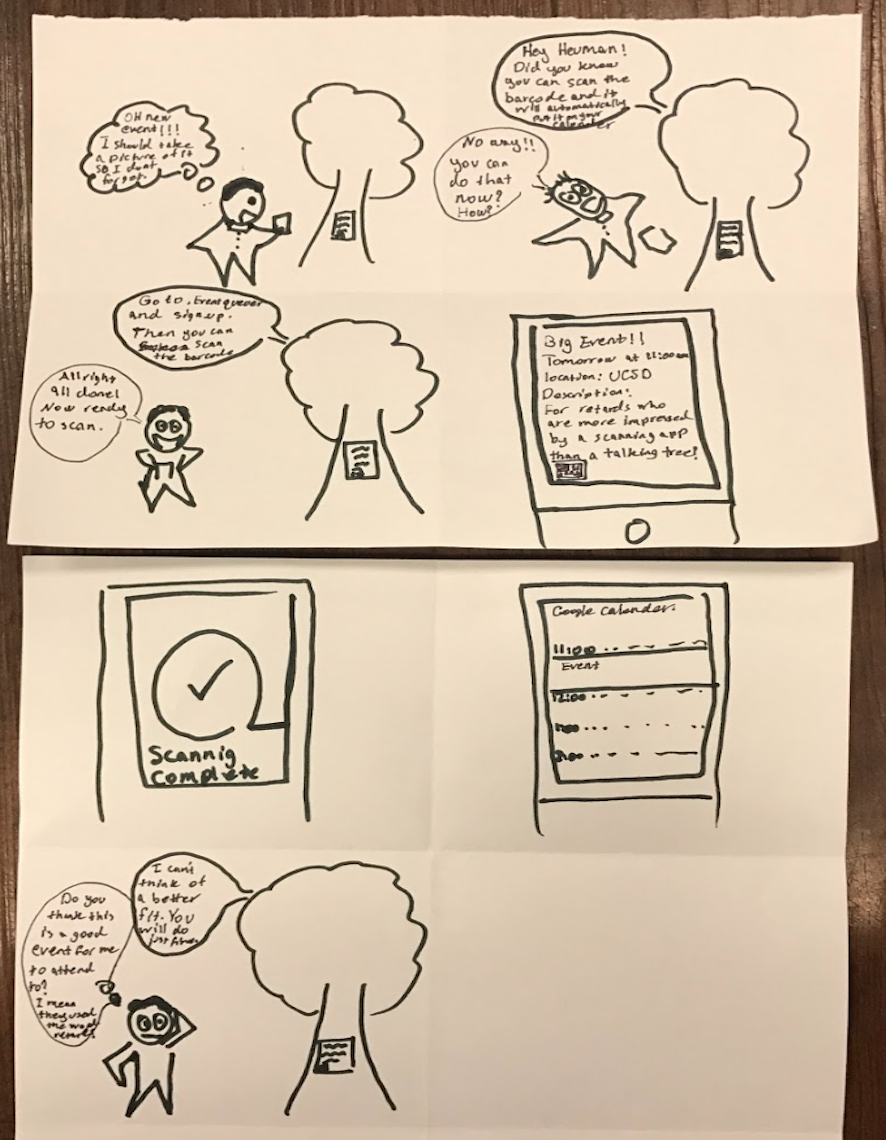 OH new
event!!!
I should take
a picture of it
so I dont
forget.
Hey Heuman!
Did you know
you can scan the
barcode and it
will automatically
put it on your
calender
No way!!
you can
do that
now?
How?
Go to, Eventqueuer
and signup.
Then you can
scan
the barcode
Allright
all done!
Now ready
to scan.
Big Event!!
Tomorrow at 11:00am
location: UCSD
Description:
For retards who
are more impressed
by a scanning app
than a talking tree!
Scannig
Complete
Google Calender.
11:00
Event
12:00
1:00
2:00
I can't
think of
a better
fit. You
will do
just fine.
Do you
think this
is a good
event for me
to attend
to?
I mean
they used
the word
retard.